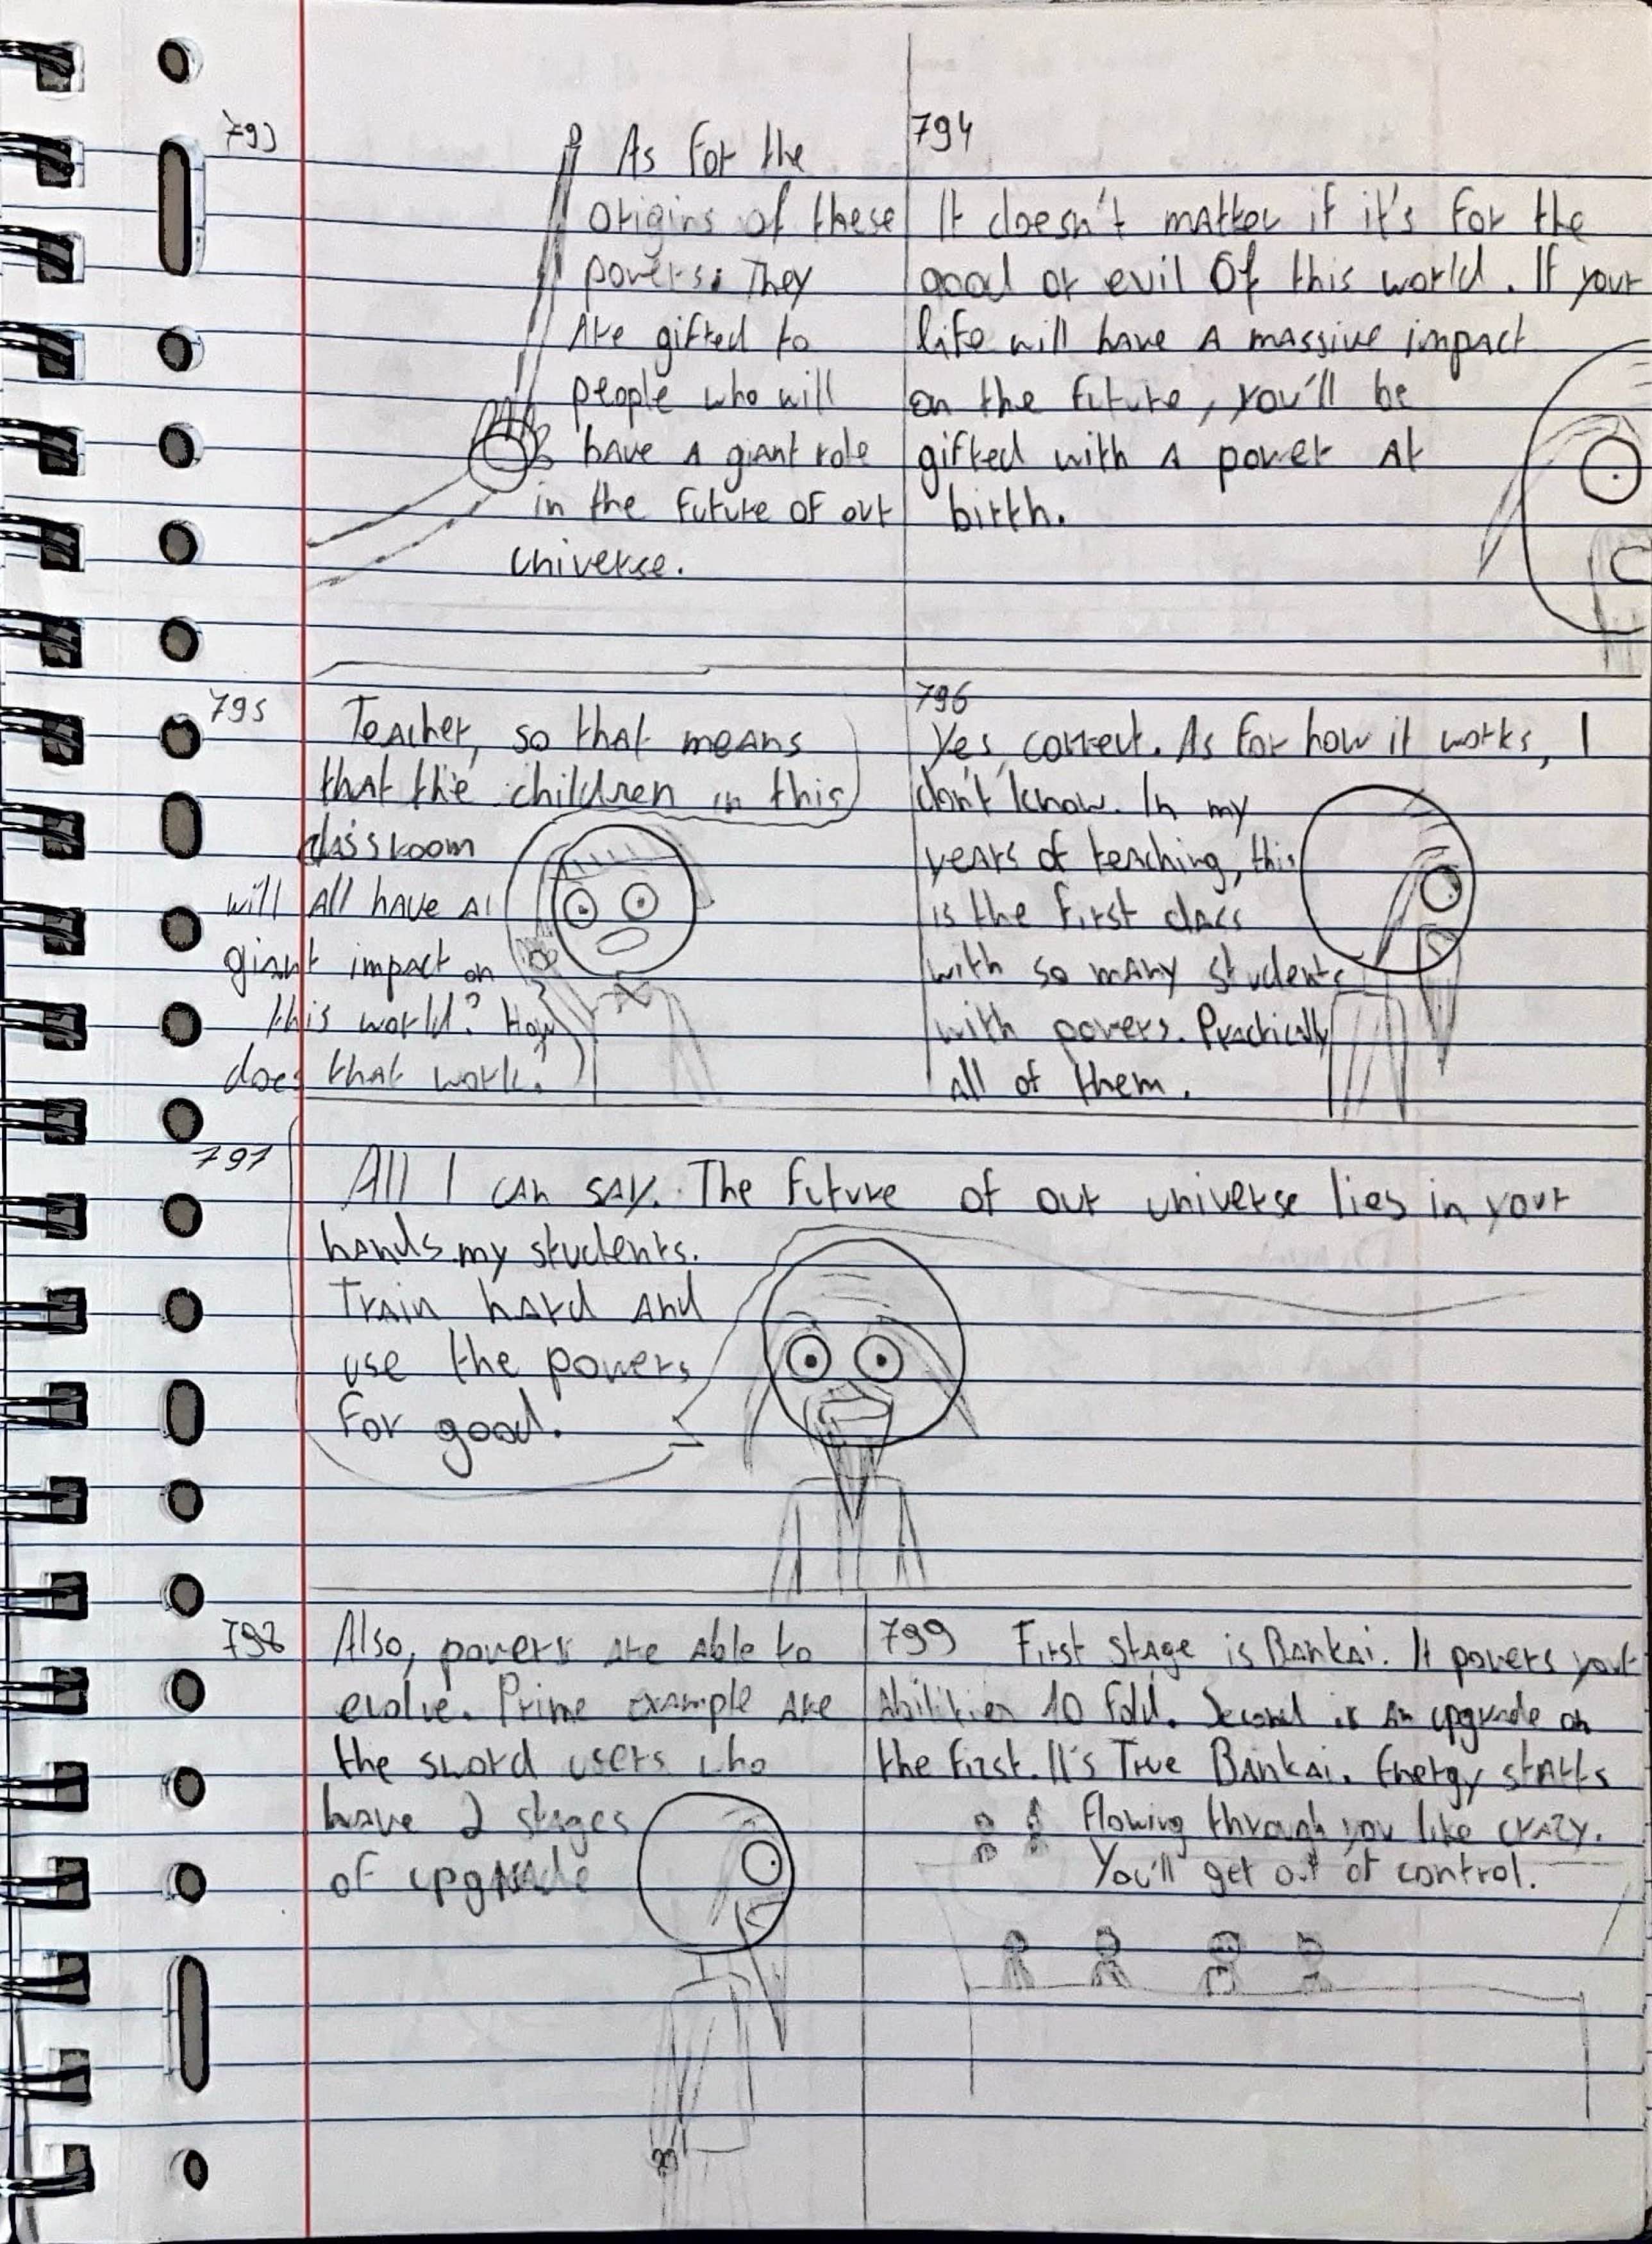 793
As for the
origins of these
powers. They
Are gifted to
people who will
have A giant role
in the future of our
universe.
794
It doesn't matter if it's for the
good or evil Of this world. If your
life will have A massive impact
on the future, you'll be
gifted with A power At
birth.
795
Teacher, so that means
that the children in this
classroom
will All have A
giant impact on
this world? How
does that work?
796
Yes, correct. As for how it works, I
don't know. In my
years of teaching, this
is the first class
with so many students
with powers. Practically
All of them.
797
All I can say. The future of our universe lies in your
hands my students.
Train hard And
use the powers
for good.
798
Also, powers Are Able to
evolve. Prime example Are
the sword users who
have 2 stages
of upgrade
799
First stage is Bankai. It powers your
Abilities 10 fold. Second is An upgrade on
the first. It's True Bankai. Energy starts
flowing through you like crazy.
You'll get out of control.